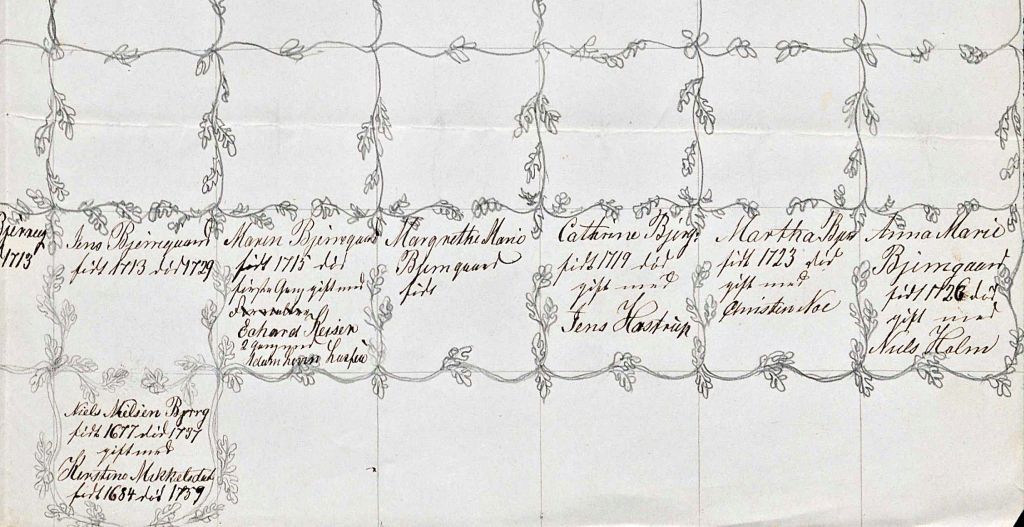 Bjerreg
1713
Jens Bjerregaard
født 1713 død 1729
Maren Bjerregaard
født 1715 død
første Gang gift med
Eahard Reisen
2 Gang med
Margrethe Marie
Bjerregaard
født
Cathrine Bjerg
født 1719 død
gift med
Jens Hastrup
Martha Bjer
født 1723 død
gift med
Christen Noe
Anna Marie
Bjerregaard
født 1726 død
gift med
Niels Holm
Niels Nielsen Bjerrg
født 1677 død 1737
gift med
Kirstine Mikkelsdat
født 1684 død 1759